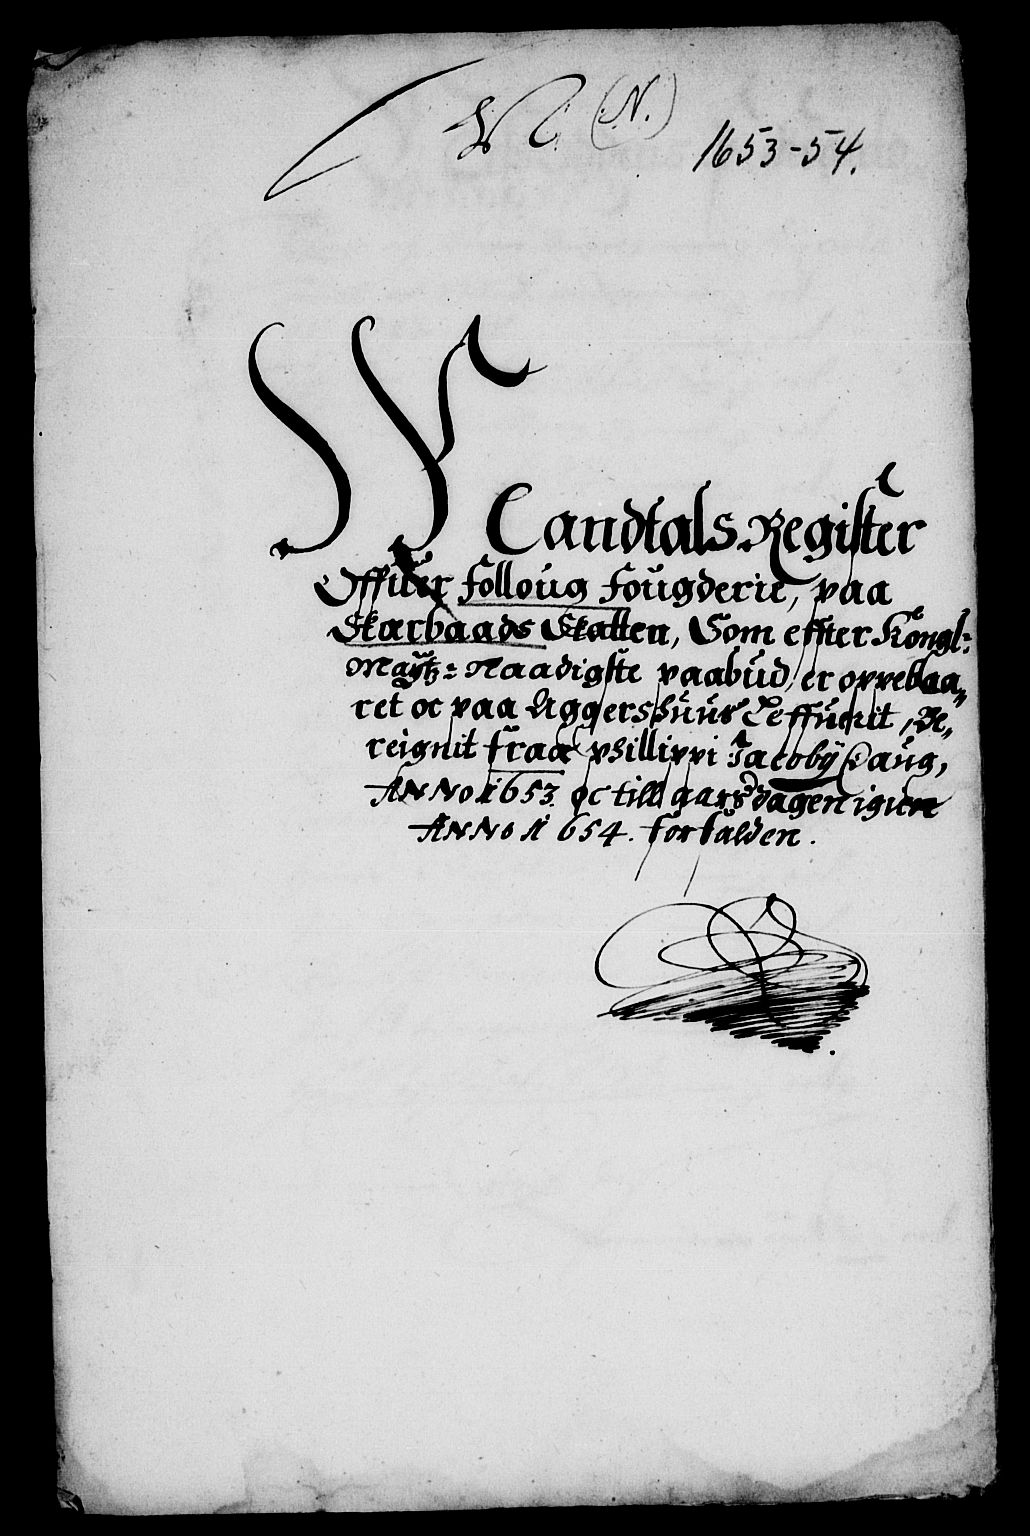 (N.)
1653-54.
Mandtals Register
Offuer Folloug Fougderie, paa
Skarbaads Skatten, Som effter Kongl:
Maytz: Naadigste paabud, er oppebaa,,
ret oc paa Aggershuus Leffuerit, Be,,
reignit fraa Phillippi Jacoby Daug,
ANNO 1653. oc till aarsdagen igien
ANNO 1654. forfalden.